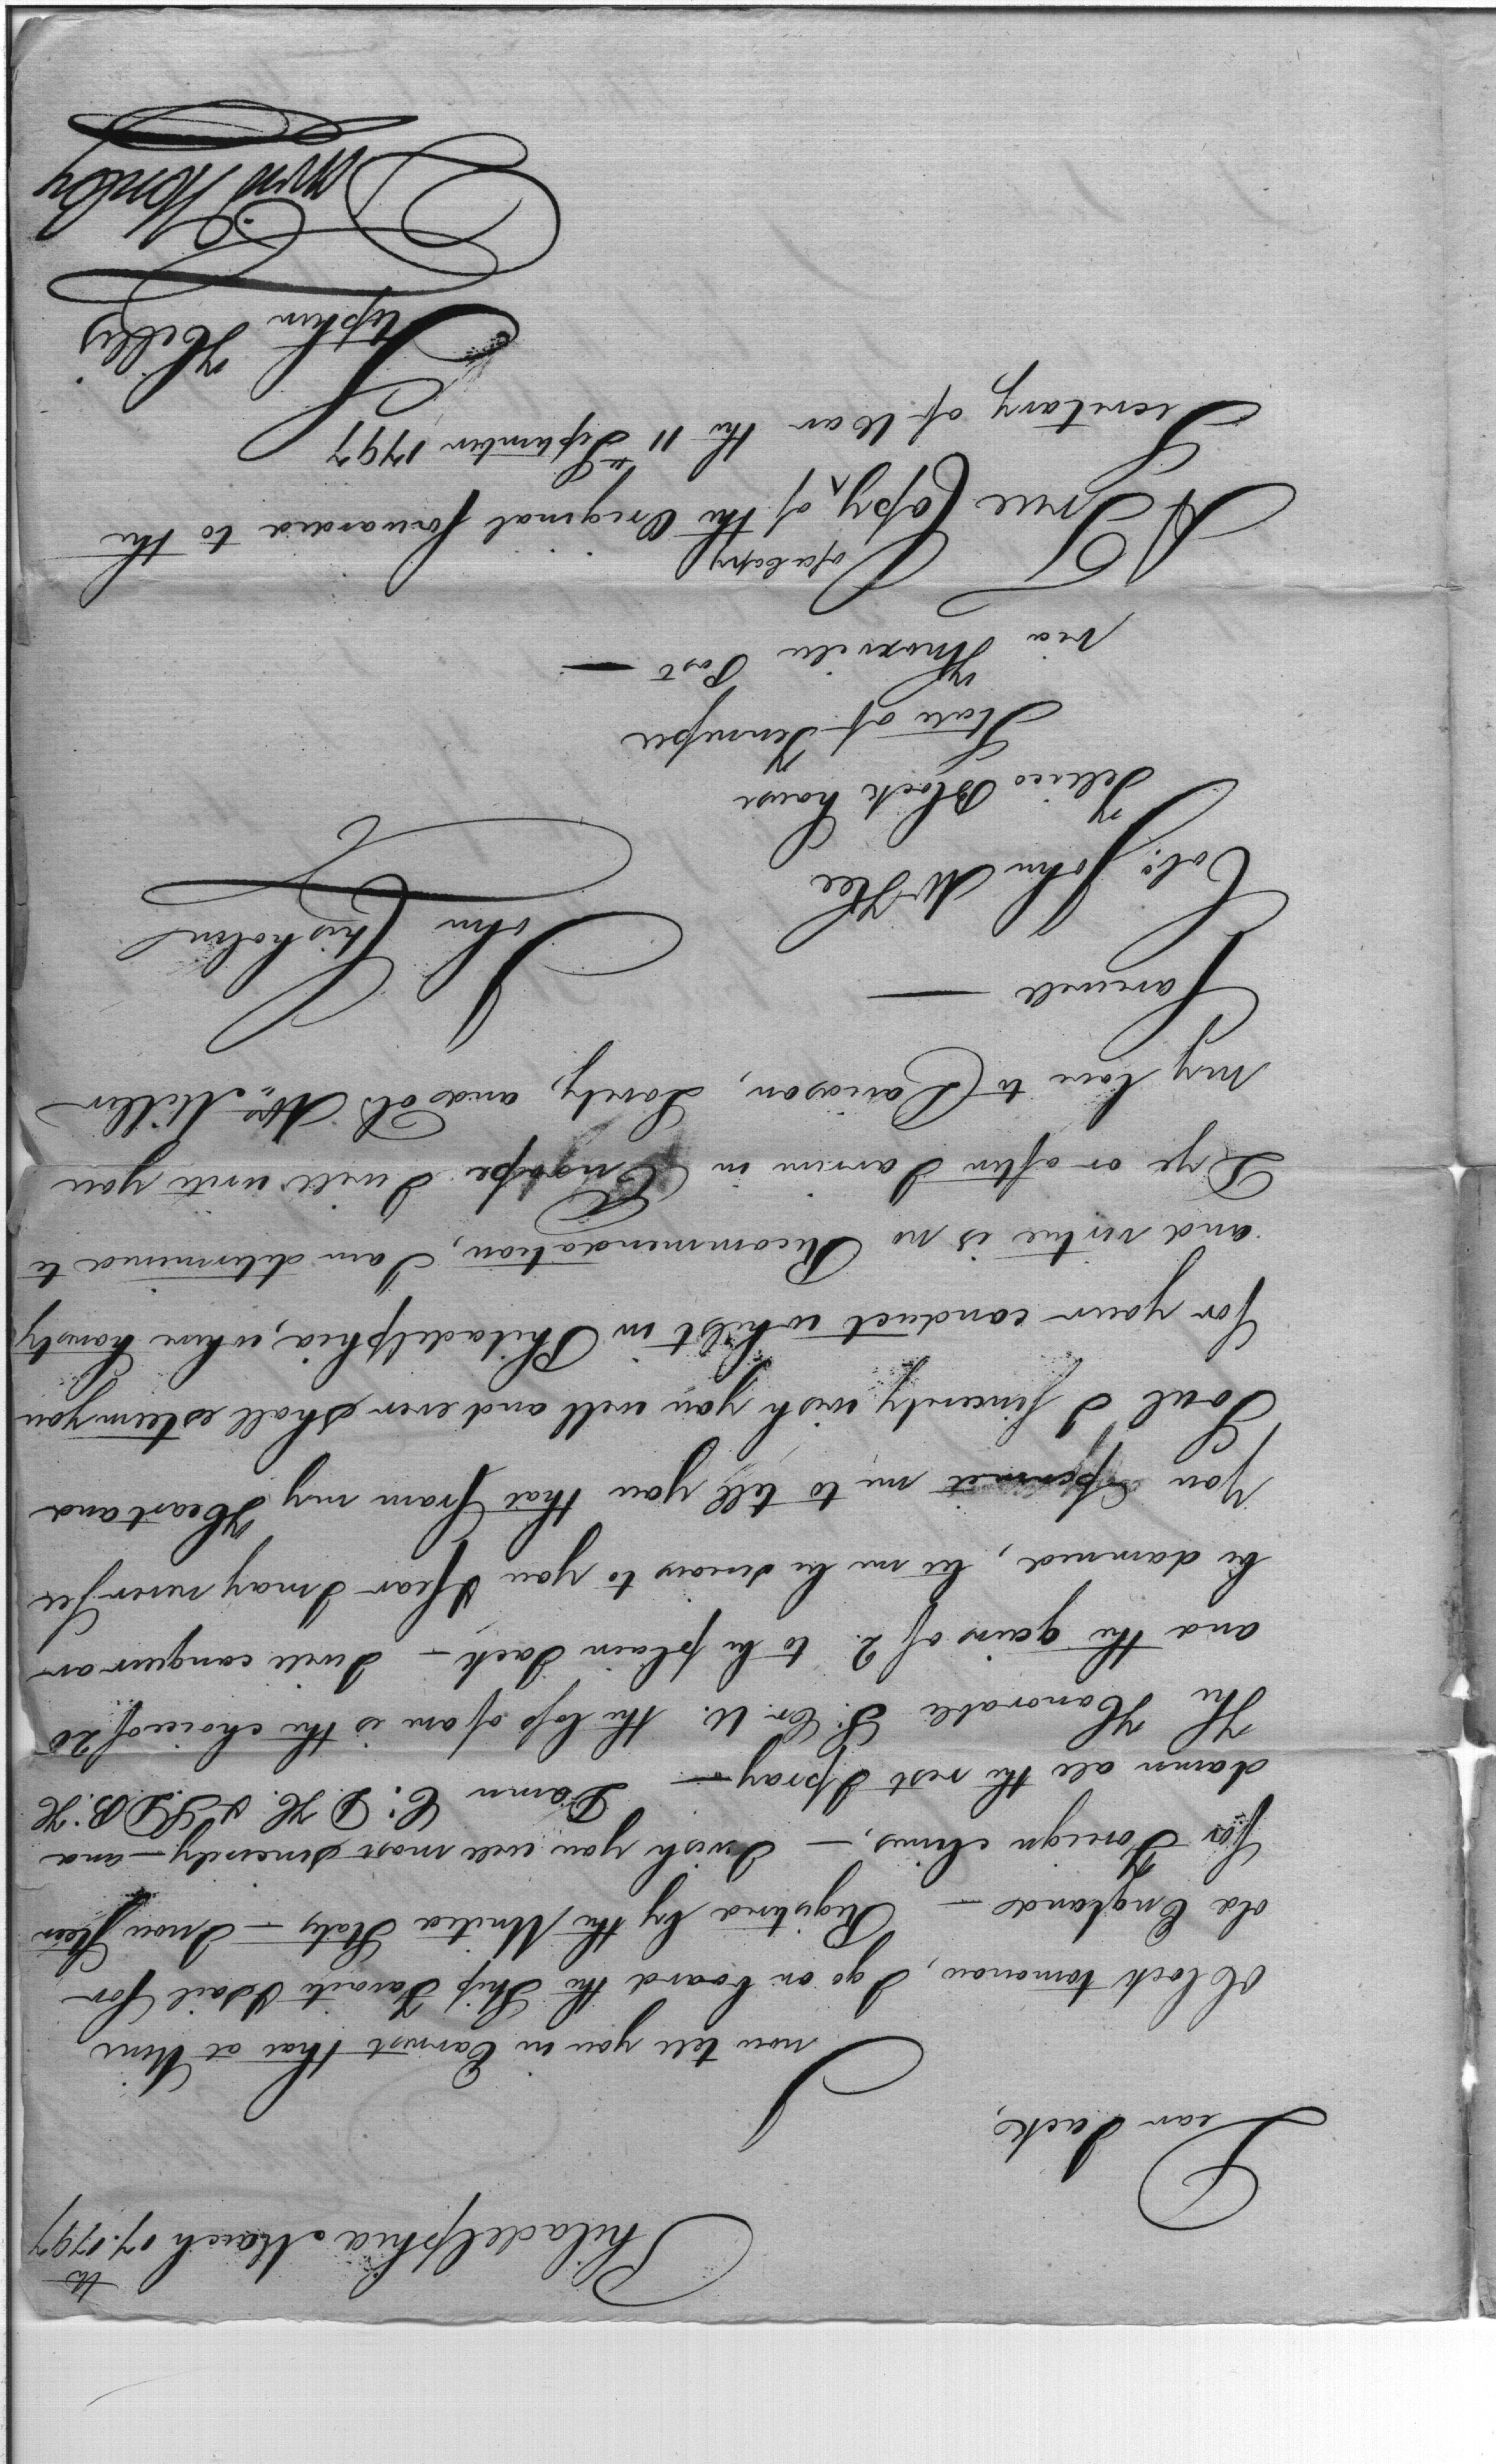 Philadelphia March 17th 1797
Dear Jack,
I now tell you in Earnest that at Nine
oClock tomorrow, I go on board the Ship Favorite & Sail for
old England — Registered by the United States — I now Steer
for Foreign climes, — I wish you well most Sincerely — and
damn all the rest I pray — Damn C: D H. & S.D.B: H
The Honorable J. Cr. W. the loss of one is the choice of 20
and the gain of 2. to be plain Jack — I will conquer or
be damned, let me be known to you I fear I may never See
you permit me to tell you that from my Heart and
Soul I Sincerely wish you well and ever shall esteem you
for your conduct whilst in Philadelphia, where honesty
and virtue is no Recommendation, I am determined to
Dye or after I arrive in Europe I will write you
my love to Davidson, Lovely, and Old Mr. Miller
Farewell —
John Chisholm
Colo. John McKee
Tellico Block house
State of Tennessee
via Knoxville Post —
A True Copy of a Copy of the Original forwarded to the
Secretary of War the 11th September 1797
Stephen Hillis
David Henley